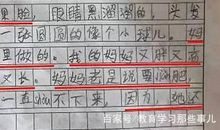 果脸，眼睛黑溜溜的，头发
一张圆圆的像个小球儿。妈
里做的。我的妈妈又胖又高
又长。妈妈老是说要减肥
一直减不下来，因为，她还
百家号/教育学习那些事儿